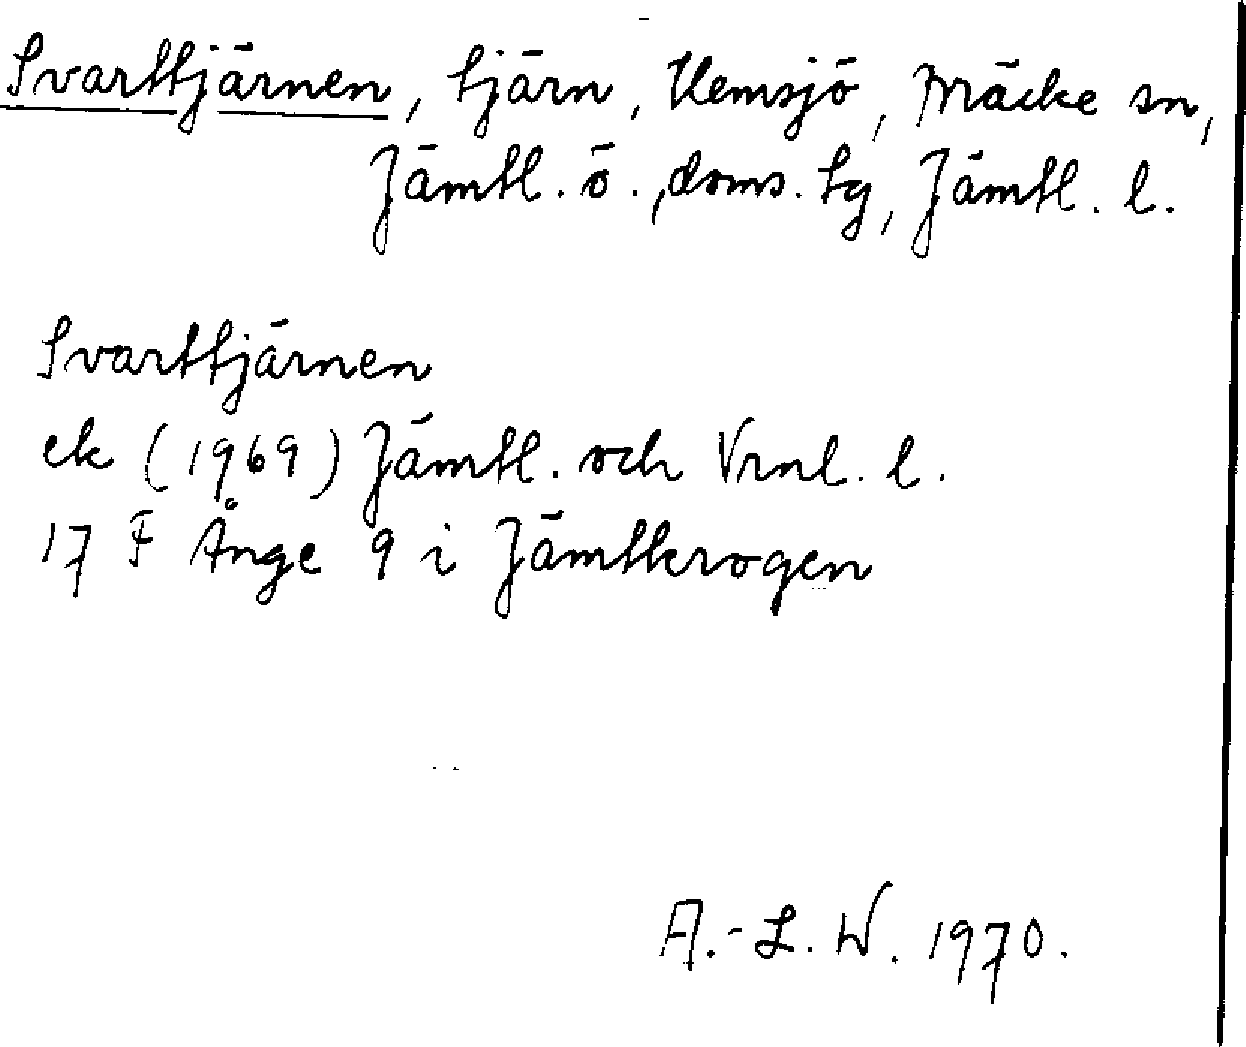 Svarttjärnen, tjärn, Kemsjö, Bräcke sn,
Jämtl. ö., doms. tg, Jämtl. l.
Svarttjärnen
ek (1969) Jämtl. och Vrnl. l.
17 F Ånge 9 i Jämtkrogen
A.-L. W. 1970.